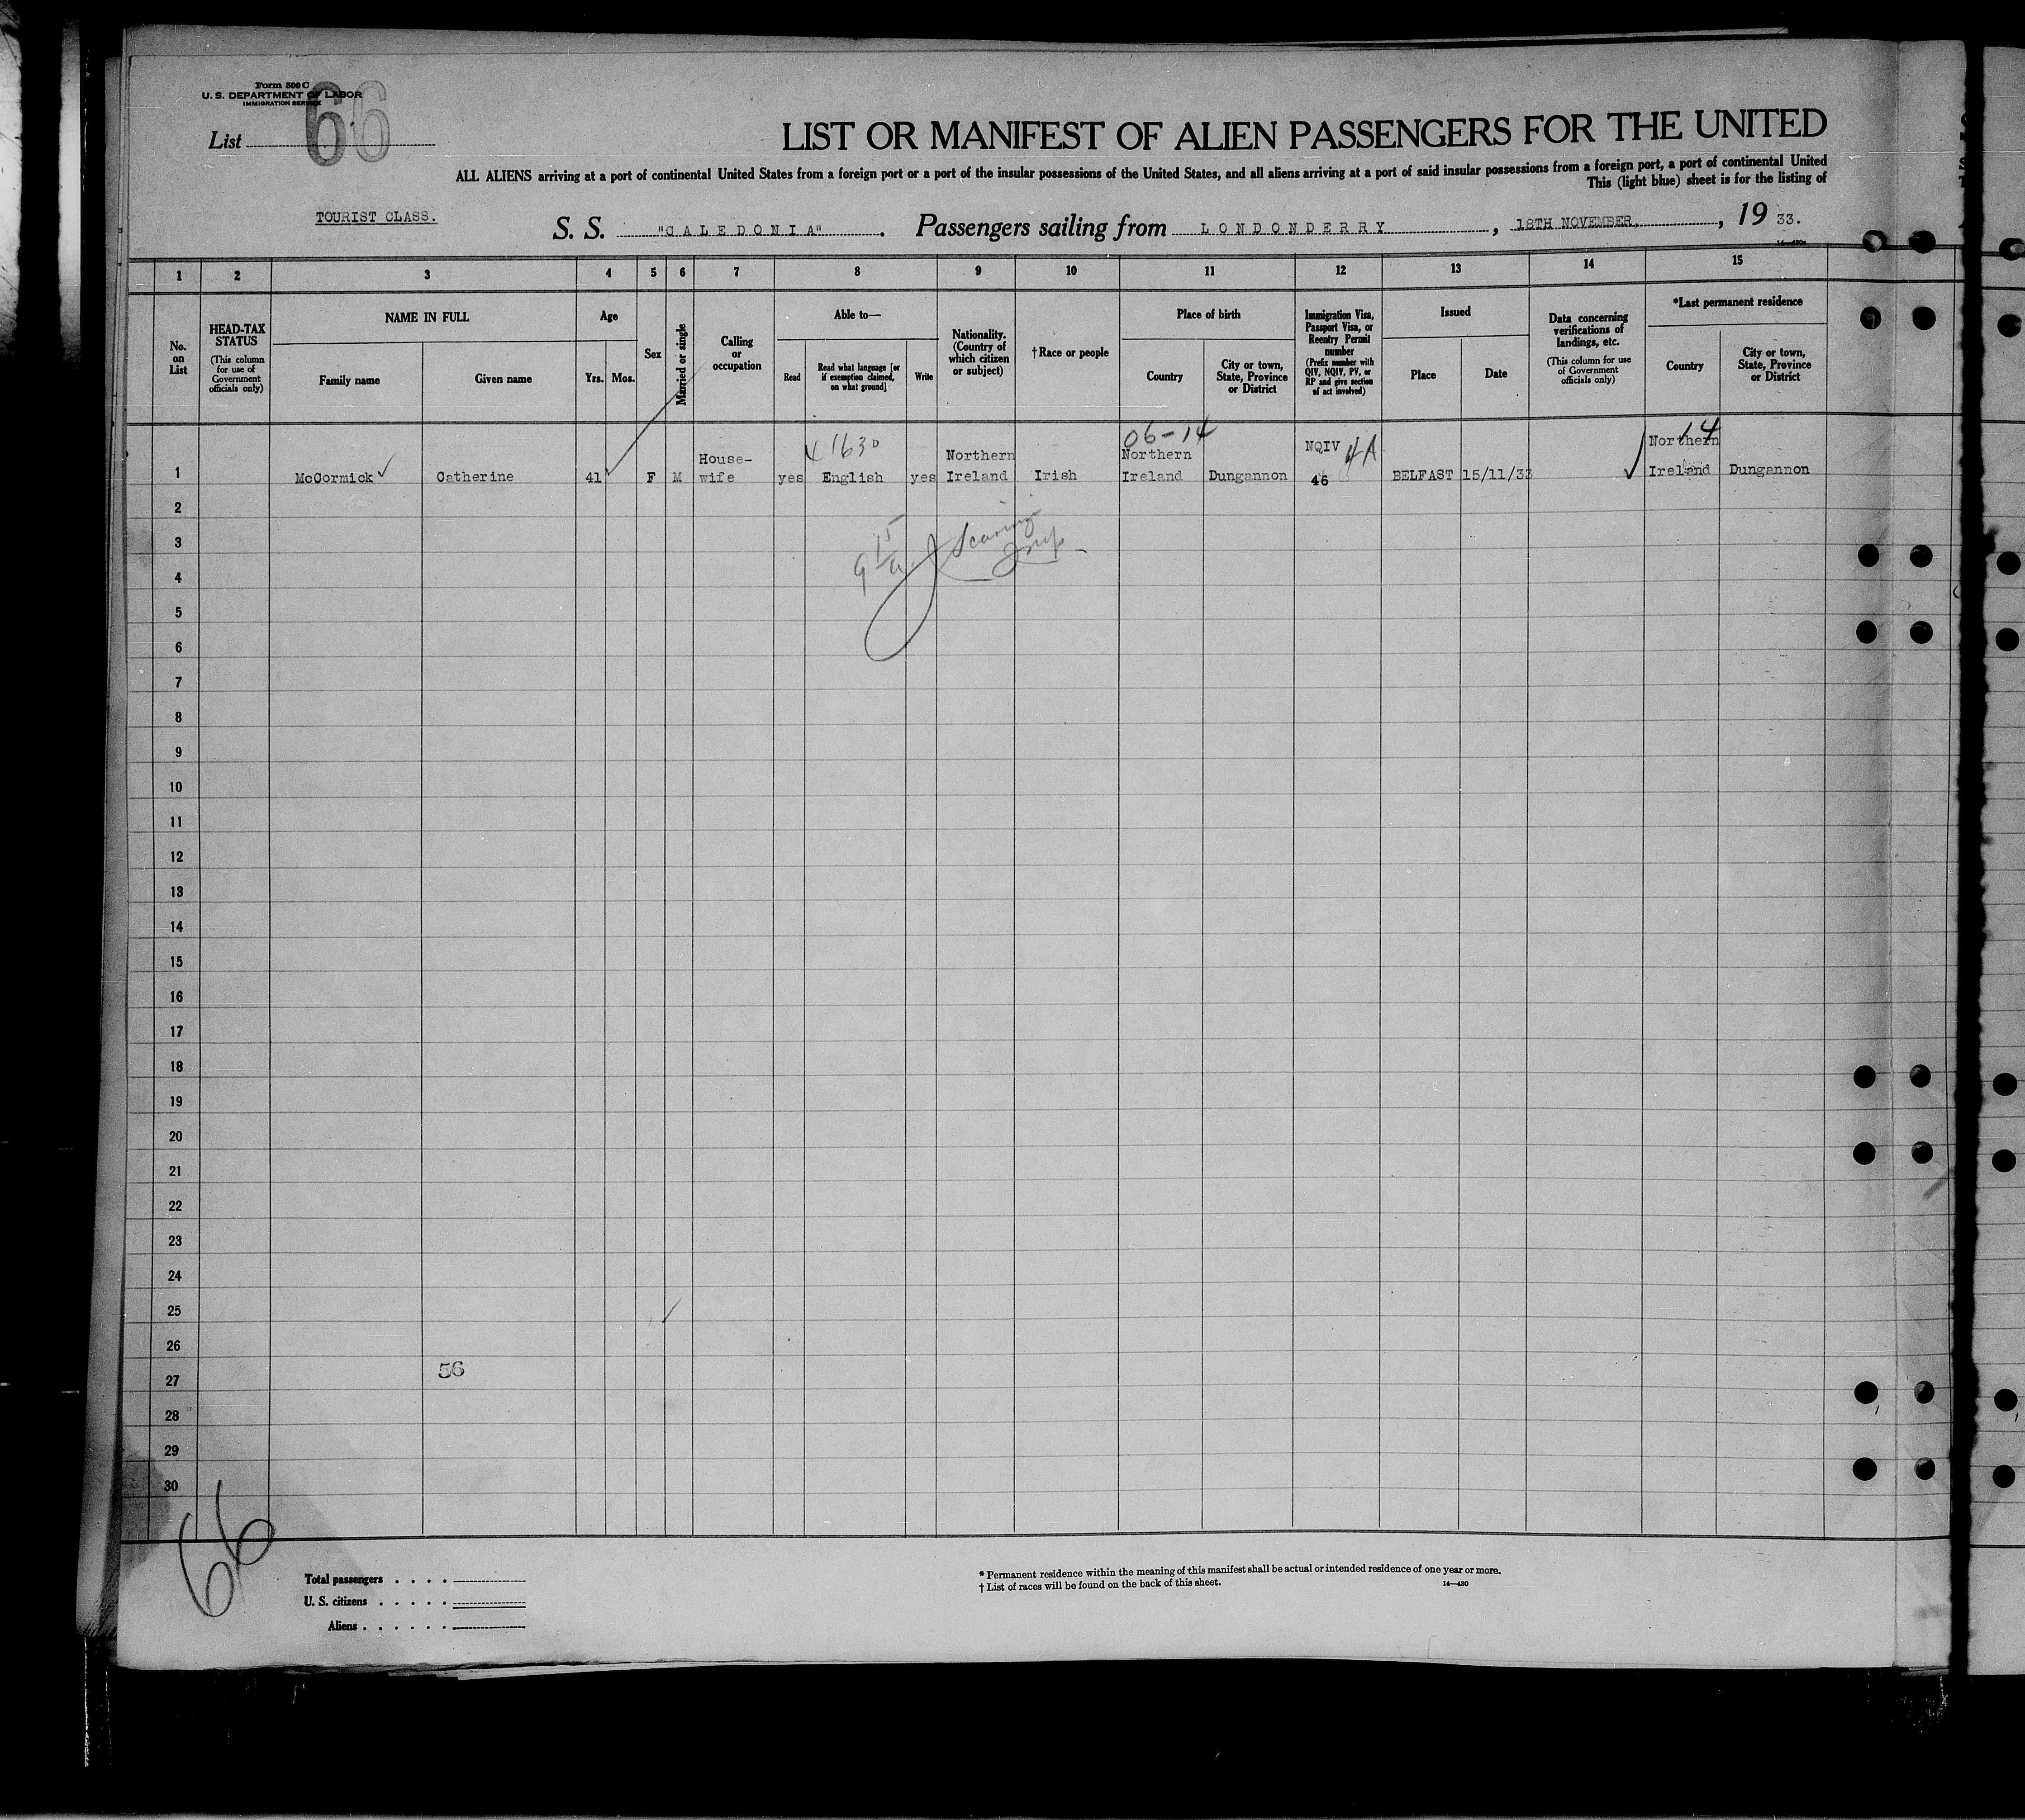 Form 500 C
U. S. DEPARTMENT OF LABOR
IMMIGRATION SERVICE
List 66
LIST OR MANIFEST OF ALIEN PASSENGERS FOR THE UNITED
ALL ALIENS arriving at a port of continental United States from a foreign port or a port of the insular possessions of the United States, and all aliens arriving at a port of said insular possessions from a foreign port, a port of continental United
This (light blue) sheet is for the listing of
TOURIST CLASS.
S. S. "CALEDONIA". Passengers sailing from LONDONDERRY, 18TH NOVEMBER, 19 33.
1 2 3 4 5 6 7 8 9 10 11 12 13 14 15
No. on List
HEAD-TAX STATUS
(This column for use of Government officials only)
NAME IN FULL
Family name
Given name
Age
Yrs. Mos.
Sex
Married or single
Calling or occupation
Able to—
Read
Read what language [or if exemption claimed, on what ground]
Write
Nationality. (Country of which citizen or subject)
†Race or people
Place of birth
Country
City or town, State, Province or District
Immigration Visa, Passport Visa, or Reentry Permit number
(Prefix number with QIV, NQIV, PV, or RP and give section of act involved)
Issued
Place
Date
Data concerning verifications of landings, etc.
(This column for use of Government officials only)
*Last permanent residence
Country
City or town, State, Province or District
1 McCormick Catherine 41 F M House-wife yes English yes Northern Ireland Irish Northern Ireland Dungannon NQIV 46 4A BELFAST 15/11/33 Northern Ireland Dungannon
1630
06-14
14
2
3
4
5
6
7
8
9
10
11
12
13
14
15
16
17
18
19
20
21
22
23
24
25
26
56
27
28
29
30
66
Total passengers . . . .
U. S. citizens . . . . .
Aliens . . . . . .
* Permanent residence within the meaning of this manifest shall be actual or intended residence of one year or more.
† List of races will be found on the back of this sheet.
14—430